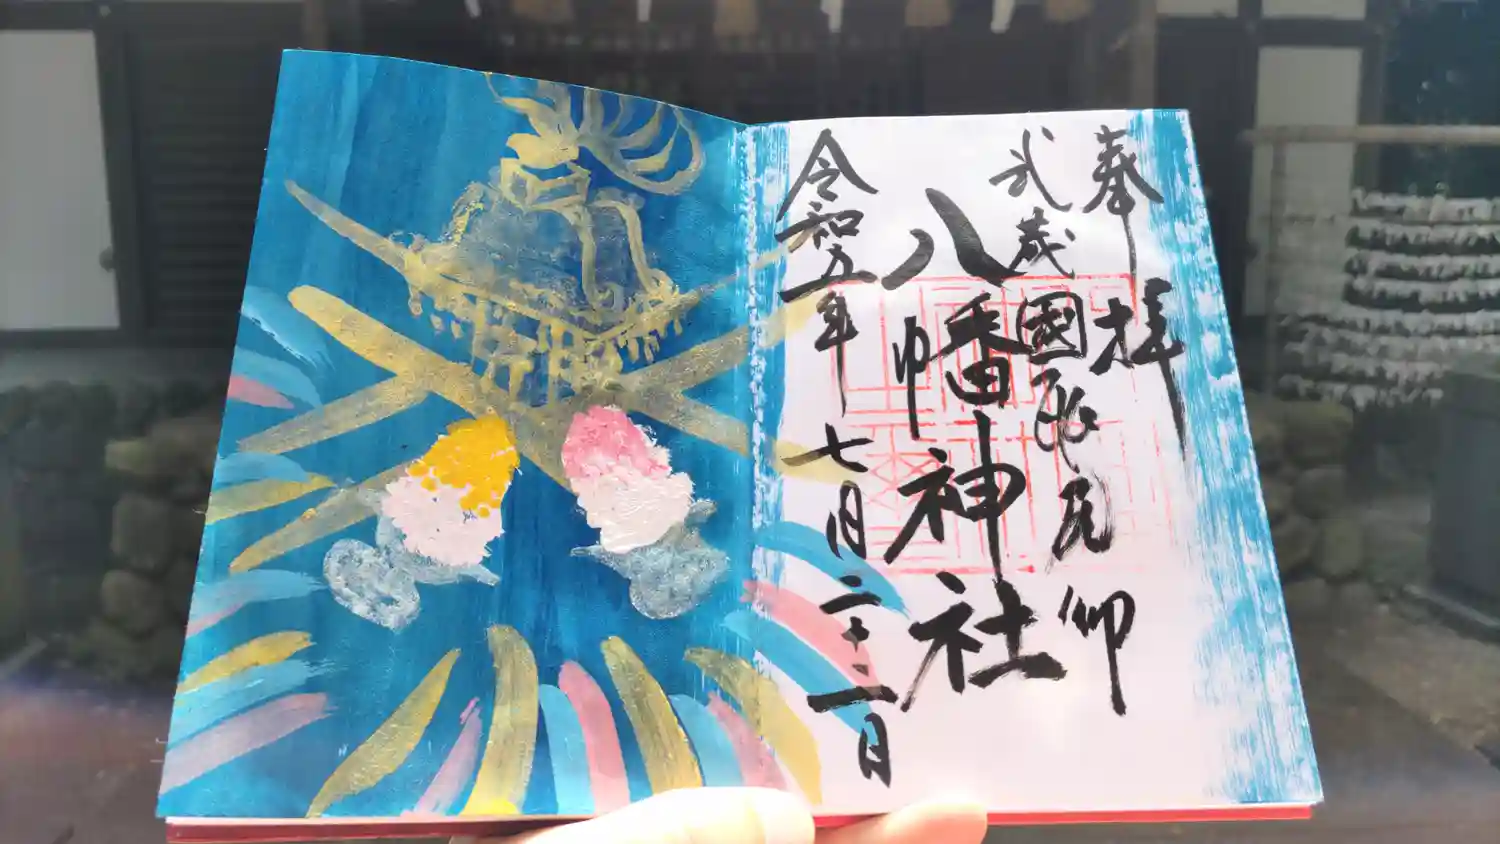 奉拝
武蔵國
八幡神社
令和五年七月二十一日